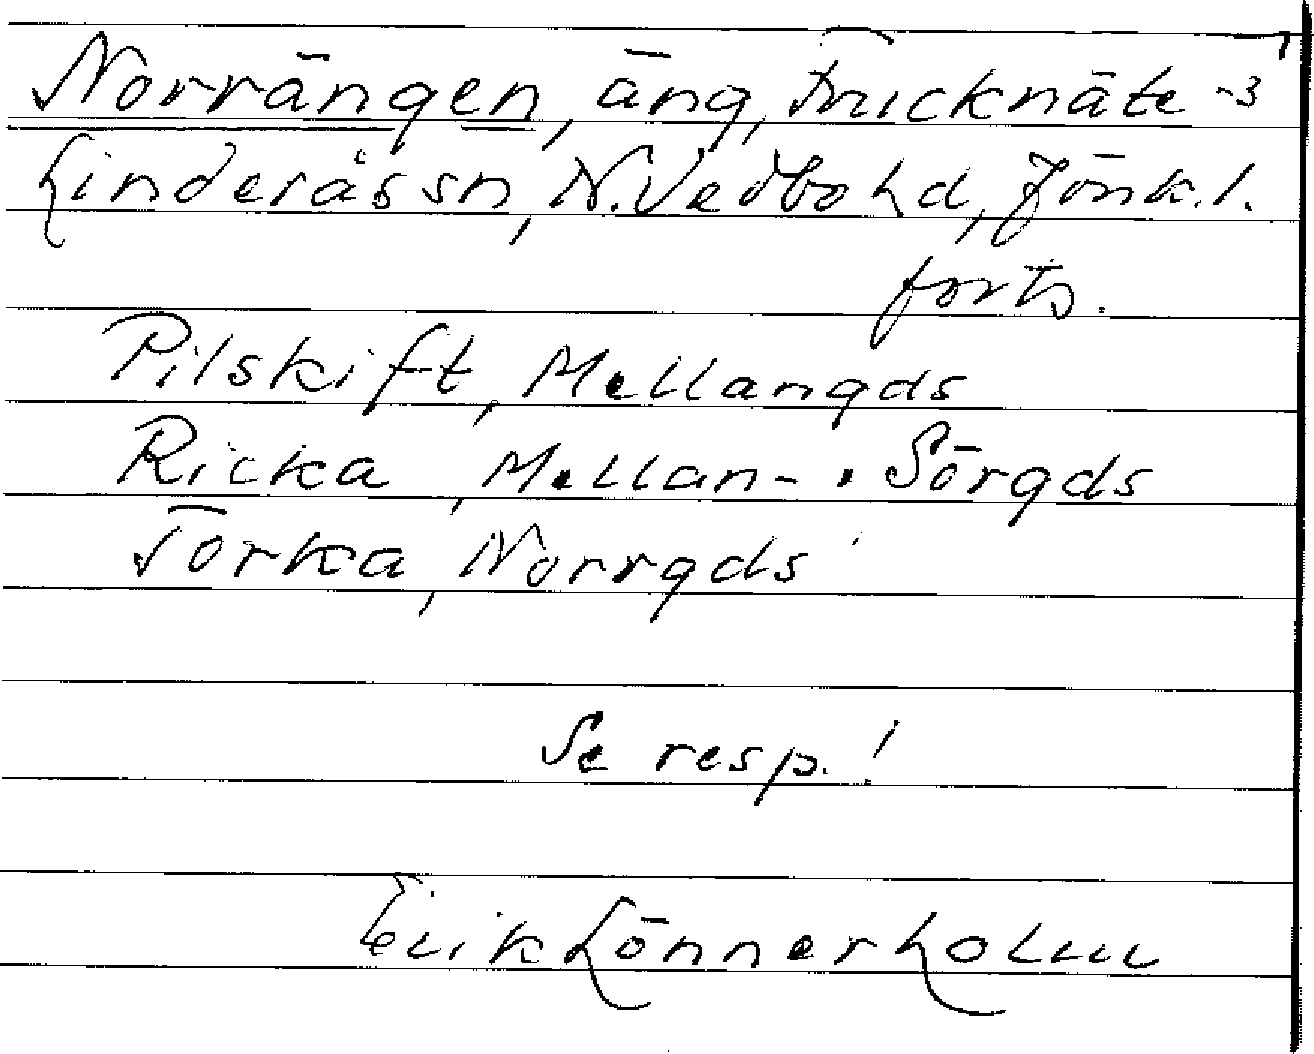 Norrängen, äng, Trucknäte -3
Linderås sn, N. Vedbo hd, Jönk. l.
forts.
Pilskift, Mellangds
Ricka, Mellan- . Sörgds
Torka, Norrgds
Se resp. !
Erik Lönnerholm